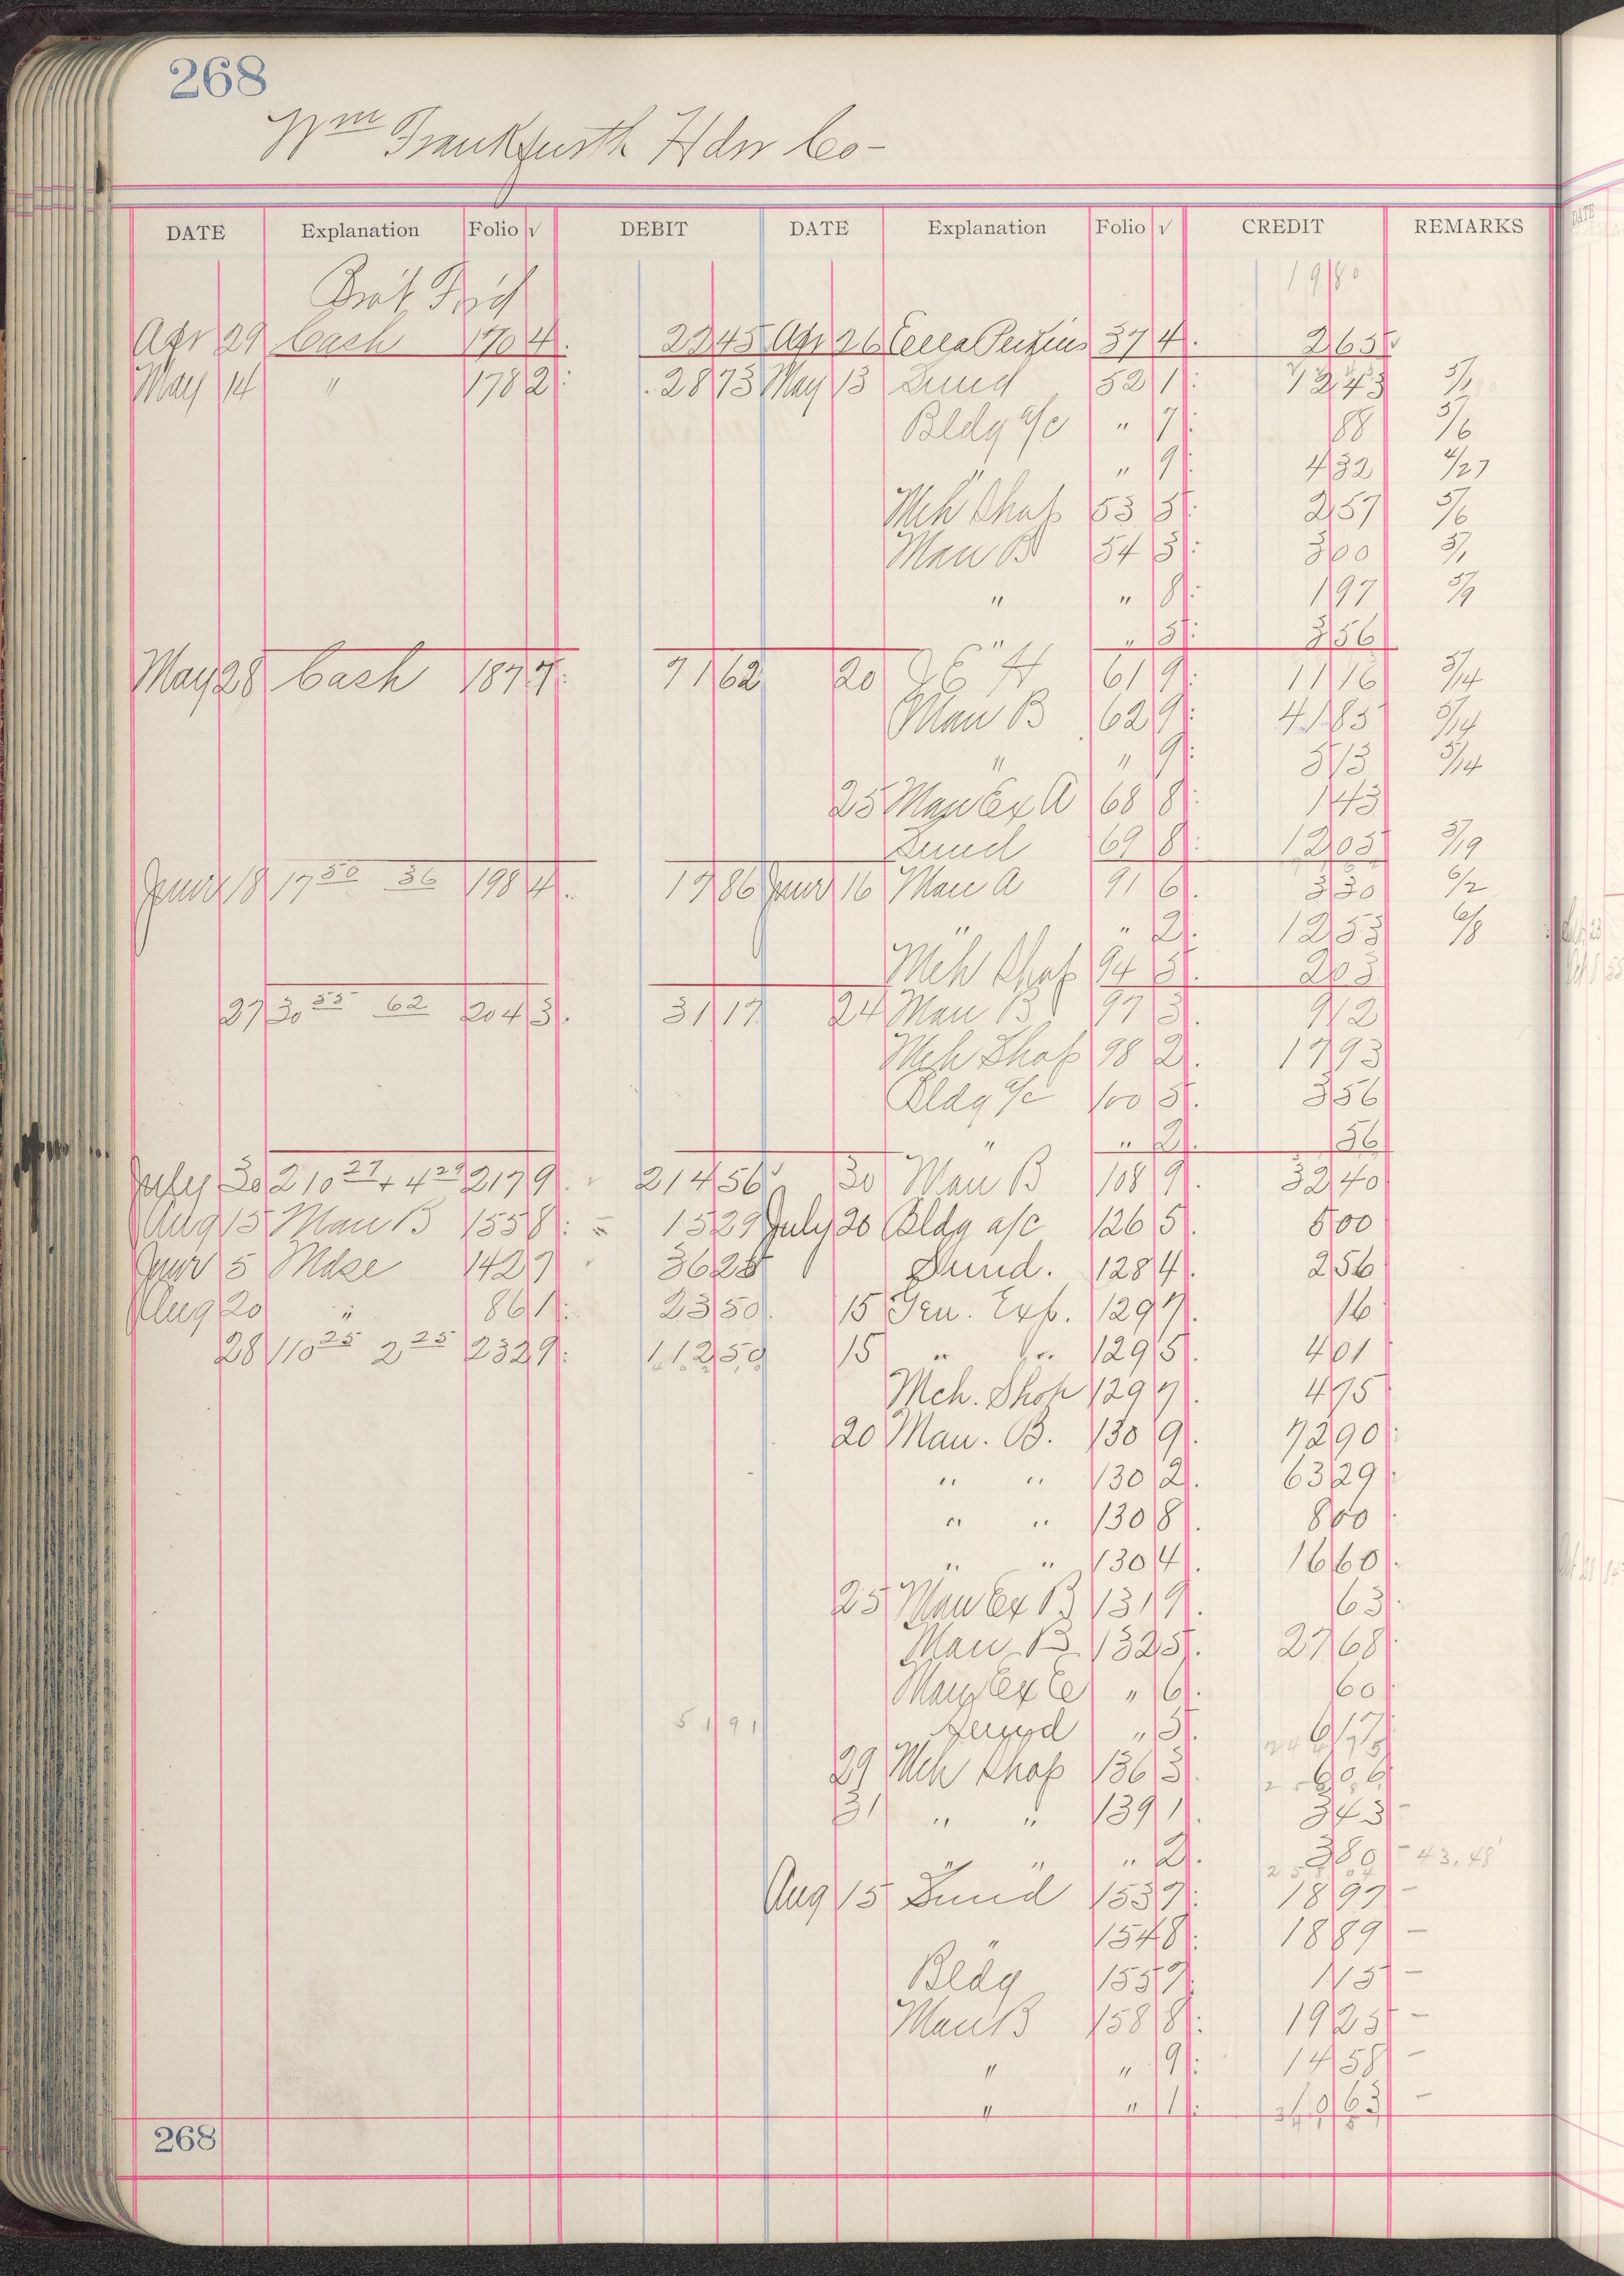 268
Wm Frankfurth Hdw Co-
DATE Explanation Folio √ DEBIT DATE Explanation Folio √ CREDIT REMARKS
1980
Apr 29 Cash 170 4. 2245 Apr 26 374. 265
May 14 " 178 2. 2873 May 13 Sund 52 1. 1243 5/1
Bldg a/c " 7. 88 5/6
" " 9. 432 4/27
Mch Shop 53 5. 257 5/6
Man B 54 3. 300 5/1
" " 8. 197 5/9
" " 5. 356
May 28 Cash 187 7. 7162 20 61 9. 1116 5/14
Man B 62 9. 4185 5/14
" " 9. 573 5/14
25 Man Ex A 68 8. 143
Sund 69 8. 1205 5/19
June 18 17 50 36 198 4. 1786 June 16 Man A 91 6. 330 6/2
" " 2. 1253 6/8
Mch Shop 94 5. 203
27 30 55 62 204 3. 3117 24 Man B 97 3. 912
Mch Shop 98 2. 1793
Bldg a/c 100 5. 356
" " 2. 56
July 30 210 27 + 4 29 217 9. 21456 30 Man B 108 9. 3240
Aug 15 Man B 155 8. 1529 July 20 Bldg a/c 126 5. 500
June 5 Mdse 142 7 3628 Sund. 128 4. 256
Aug 20 " 86 1. 2350. 15 Gen. Exp. 129 7. 16
28 110 25 2 25 232 9. 11250 15 " " 129 5. 401
Mch. Shop 129 7. 475
20 Man. B. 130 9. 7290
" " 130 2. 6329
" " 130 8. 800
" " 130 4. 1660
25 Man Ex B 131 9. 63
Man B 132 5. 2768
Man Ex C " 6. 60
5191 " 5. 617
29 Mch Shop 136 3. 606
31 " " 139 1. 343 -
" " " 2. 380 - 43.48
Aug 15 Sund 153 7. 1897 -
" 154 8. 1889 -
Bldg 155 7. 115 -
Man B 158 8. 1925 -
" " 9. 1458 -
" " 1. -
268